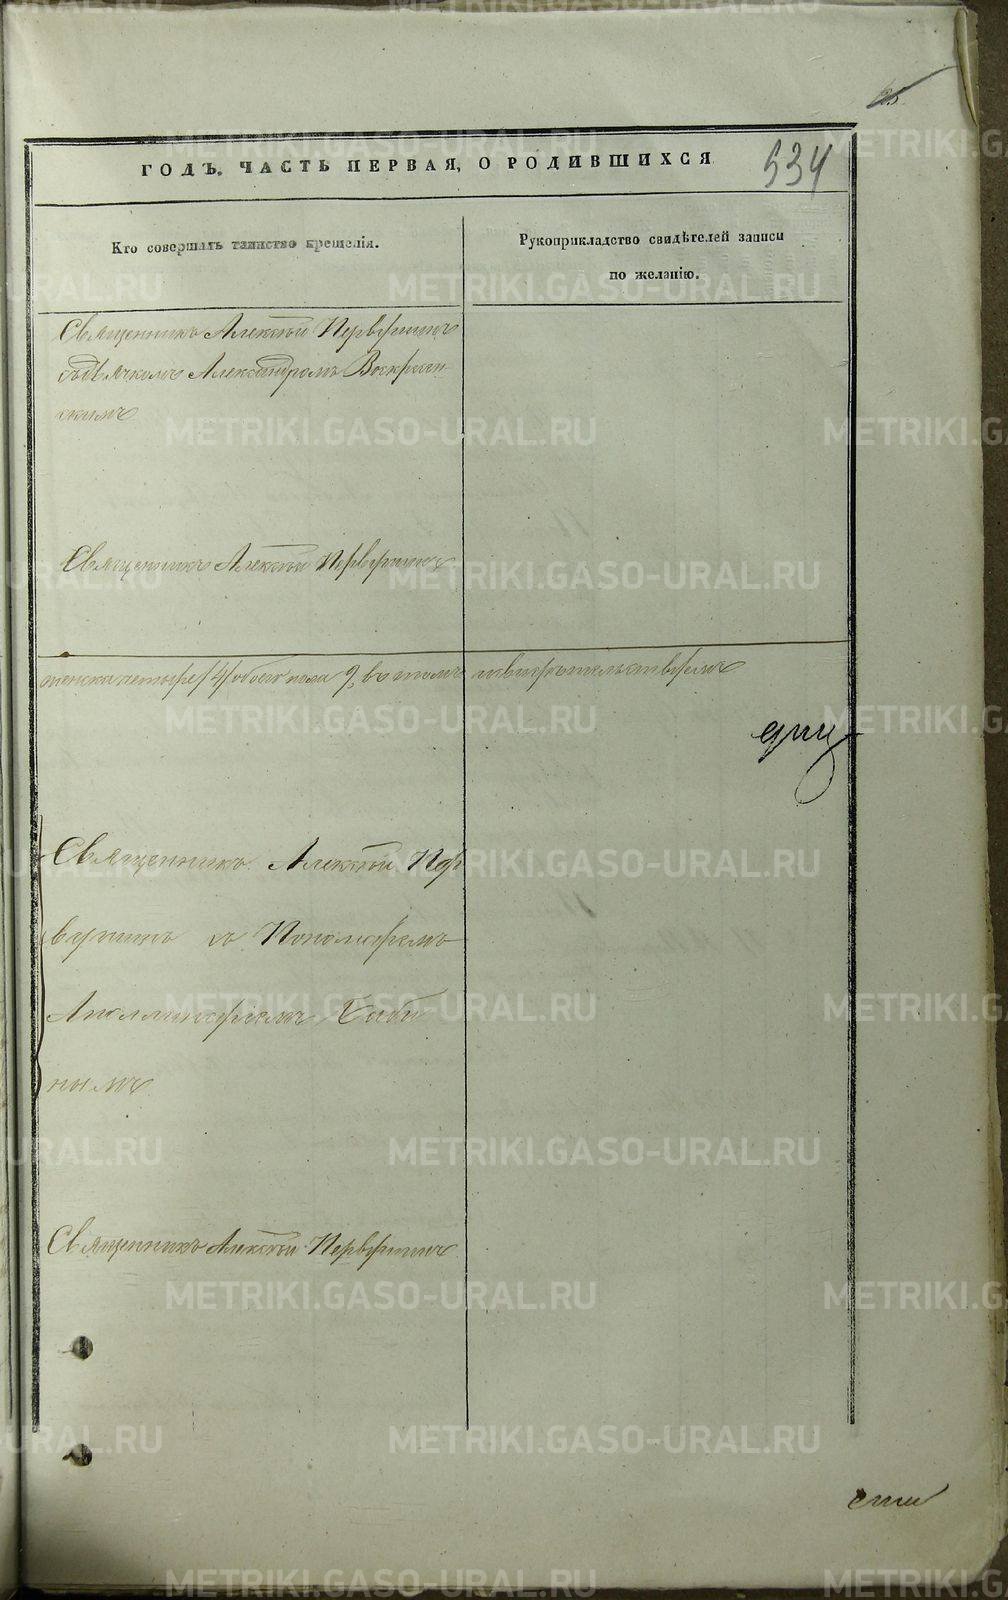 534
ГОДЪ. ЧАСТЬ ПЕРВАЯ, О РОДИВШИХСЯ
Кто совершалъ таинство крещенія.
Рукоприкладство свидѣтелей записи
по желанію.
Священникъ Алексѣй Первушинъ
съ дьячкомъ Александромъ Воскресен-
скимъ
Священникъ Алексѣй Первушинъ
женска четыре /4/ обоего пола 9, въ томъ
Священникъ Алексѣй Пер
вушинъ съ Пономаремъ
Аполлинаріемъ Баби
нымъ
Священникъ Алексѣй Первушинъ
METRIKI.GASO-URAL.RU